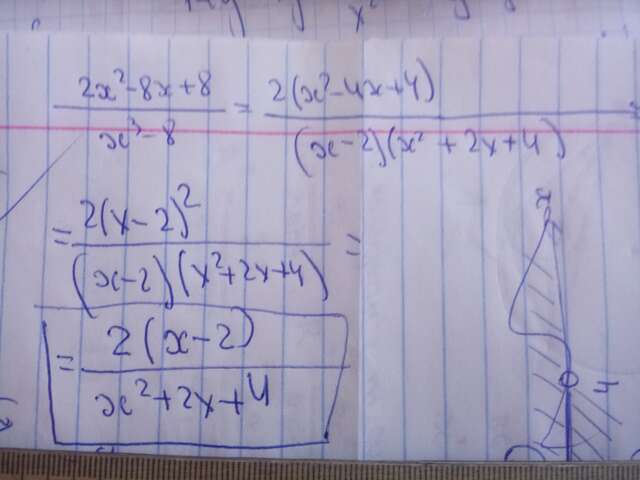 2x²-8x+8 / x³-8 = 2(x²-4x+4) / (x-2)(x²+2x+4)
= 2(x-2)² / (x-2)(x²+2x+4) =
= 2(x-2) / x²+2x+4
x
4